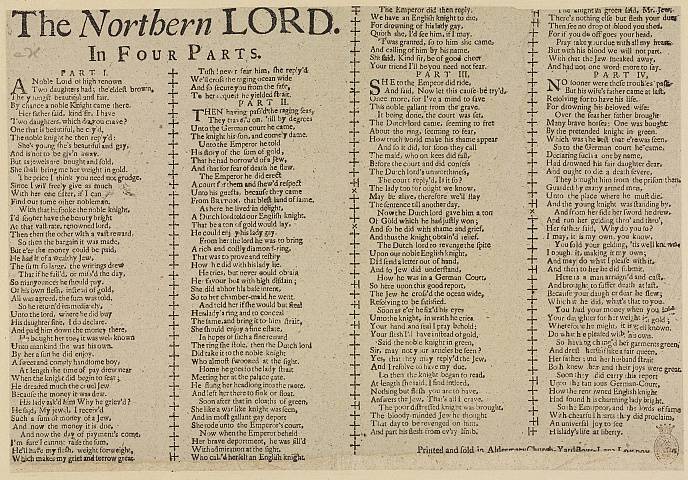 The Northern LORD.
In FOUR PARTS.
PART I.
A Noble Lord of high renown
Two daughters had, the eldest brown,
The youngest beautiful and fair.
By chance a noble Knight came there.
Her father said, kind sir, I have
Two daughters, which do you crave?
One that is beautiful, he cry'd,
The noble knight he then reply'd:
She's young she's beautiful and gay,
And is not to be giv'n away.
But as jewels are bought and sold,
She shall bring me her weight in gold.
The price I think you need not grudge,
Since I will freely give as much
With her one sister, if I can
Find out some other nobleman.
With that bespoke the noble knight,
I'd sooner have the beauty bright
At that vast rate, renowned lord,
Then then the other with a vast reward.
So then the bargain it was made,
But e'er the money could be paid,
He had it of a wealthy Jew,
The sum so large, the writings drew
That if he fail'd, or miss'd the day,
So many ounces he should pay
Of his own flesh, instead of gold.
All was agreed, the sum was told,
So he return'd immediately,
Unto the lord, where he did buy
His daughter fine, I do declare,
And paid him down the money there.
He bought her too, it was well known
Unto mankind she was his own.
By her a son he did enjoy,
A sweet and comely handsome boy,
At length the time of pay drew near
When the knight did begin to fear;
He dreaded much the cruel Jew
Because the money it was due.
His lady ask'd him Why he griev'd?
He said, My jewel, I receiv'd
Such a sum of money of a Jew,
And now the money it is due.
And now the day of payment's come,
I'm sure I cannot raise the sum,
He'll have my flesh, weight for weight,
Which makes my grief and sorrow great.
Tush! never fear him, she reply'd
We'll cross the raging ocean wide
And so secure you from the fate,
To her request he yielded strait.
PART II.
THEN having pass'd the raging seas,
They travel'd on, 'till by degrees
Unto the German court he came,
The knight, his son, and comely dame.
Unto the Emperor he told
His story of the sum of gold,
That he had borrow'd of a Jew,
And that for fear of death he flew.
The Emperor he did erect
A court for them and shew'd respect
Unto his guests, because they came
From BRITAIN, that blest land of fame.
As here he lived in delight,
A Dutch lord told our English knight,
That he a ton of gold would lay,
He could enjoy his lady gay.
From her the lord he was to bring
A rich and costly diamond-ring,
That was to prove and testify
How he did with his lady lie.
He tries, but never could obtain
Her favour but with high disdain;
She did abhor his base intent,
So to her chamber-maid he went,
And told her if she would but steal
Her lady's ring and to conceal
The same, and bring it to him strait,
She should enjoy a fine estate.
In hopes of such a fine reward
The ring she stole, then the Dutch lord
Did take it to the noble knight
Who almost swooned at the sight.
Home he goes to the lady strait
Meeting her at the palace gate,
He flung her headlong into the mote.
And left her there to sink or float,
Soon after that in cloaths of green,
She like a war like knight was seen,
And in most gallant gay deport
She rode unto the Emperor's court.
Now when the Emperor beheld
Her brave deportment, he was fill'd
With admiration at the sight,
Who call'd herself an English knight.
The Emperor did then reply,
We have an English knight to die,
For drowning of his lady gay.
Quoth she, I'd see him, if I may.
'Twas granted, so to him she came,
And calling of him by his name,
She said, Kind sir, be of good cheer
Your friend I'll be you need not fear.
PART III.
SHE to the Emperor did ride,
And said, Now let this cause be try'd,
Once more, for I've a mind to save
This noble gallant from the grave.
It being done, the court was set,
The Dutch lord came, seeming to fret
About the ring, seeming to fear,
How truth would make his shame appear
And so it did, for soon they call
The maid, who on knees did fall,
Before the court and did confess
The Dutch lord's unworthiness,
The court reply'd, Is it so?
The lady too for ought we know,
May be alive, therefore we'll stay
The sentence till another day.
Now the Dutch lord gave him a ton
Of Gold which he had justly won;
And so he did with shame and grief,
And thus the knight obtain'd relief.
The Dutch lord to revenge the spite
Upon our noble English knight,
Did send a letter out of hand,
And so Jew did understand
How he was in a German Court,
So here upon this good report,
The Jew he cross'd the ocean wide,
Resolving to be satisfied.
Soon as e'er he fix'd his eyes
Unto the knight, in wrath he cries
Your hand and seal I pray behold;
Your flesh I'll have instead of gold.
Said the noble knight in green,
Sir, may not your articles be seen?
Yes, that they may reply'd the Jew,
And I resolve to have my due.
Lo then the knight began to read,
At length she said, I find indeed,
Nothing but flesh you are to have,
Answers the Jew, That's all I crave.
The poor distressed knight was brought,
The bloody-minded Jew he thought
That day to be revenged on him,
And part his flesh from ev'ry limb.
The knight in green said, Mr. Jew,
There's nothing else but flesh your due,
Then see no drop of blood you shed,
For if you do off goes your head.
Pray take your due with all my heart,
But with his blood we will not part.
With that the Jew sneaked away,
And had not one word more to say.
PART IV.
NO sooner were these troubles past,
But his wife's father came at last,
Resolving for to have his life,
For drowning his beloved wife:
Over the seas her father brought
Many brave horses: One was bought
By the pretended knight in green,
Which was the best that e'er was seen.
So to the German court he came,
Declaring such a one by name,
Had drowned his fair daughter dear,
And ought to die a death severe.
They brought him from the prison then,
Guarded by many armed men,
Unto the place where he must die,
And the young knight was standing by
And from her side her sword she drew,
And run her gelding thro' and thro',
Her father said, Why do you so?
I may, it is my own, you know.
You sold your gelding, 'tis well known,
I bought it, making it my own;
And may do what I please with it.
And then to her he did submit.
Here is a man arraign'd and cast,
And brought to suffer death at last,
Because your daughter dear he slew;
Which if he did, what's that to you.
You had your money when you sold
Your daughter for her weight in gold;
Wherefore he might, it is well known,
Do what he pleased with his own.
So having chang'd her garments green,
And drest herself like a fair queen,
Her father and her husband strait
Both knew her and their joys were great.
Soon they did carry this report
Unto that famous German-Court,
How the renowned English knight
Had found his charming lady bright.
So the Emperor, and the lords of fame
With chearful hearts they did proclaim,
An universal joy to see
His lady's life at liberty.
Printed and sold in Aldermary Church-Yard Bow-Lane London.